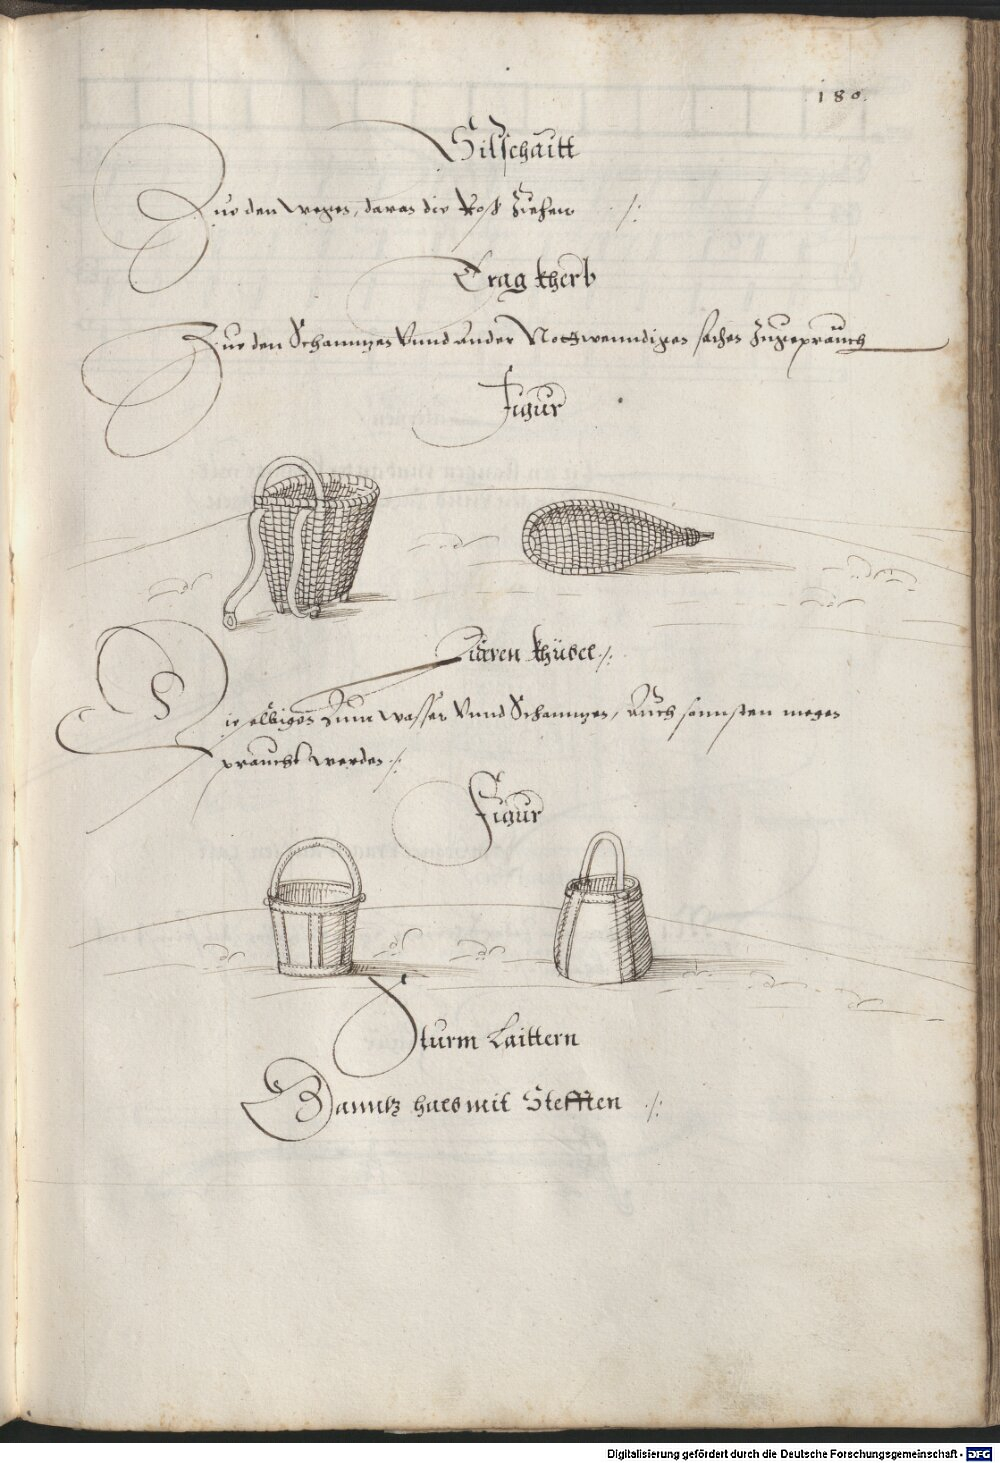 180.
Silschaitt
Zue den wegen, daran die Roß Ziehen ./:
Trag Kherb
Zue den Schanntzen Vnnd ander Nottwenndigen sachen Zugeprauch
Figur
Lideren Khübel ./:
Die selbigen Zum wasser Vnnd Schanntzen, Auch sonnsten megen
praucht werden ./:
Figur
Sturm Laittern
Ganntz hael mit Stefften ./:
Digitalisierung gefördert durch die Deutsche Forschungsgemeinschaft - DFG